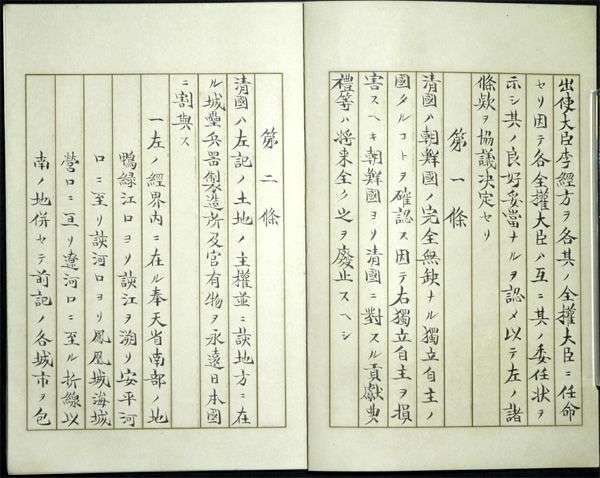 出使大臣李經方ヲ各其ノ全權大臣ニ任命
セリ因テ各全權大臣ハ互ニ其ノ委任狀ヲ
示シ其ノ良好妥當ナルヲ認メ以テ左ノ諸
條款ヲ協議決定セリ
第一條
清國ハ朝鮮國ノ完全無缺ナル獨立自主ノ
國タルコトヲ確認ス因テ右獨立自主ヲ損
害スヘキ朝鮮國ヨリ清國ニ對スル貢獻典
禮等ハ將來全ク之ヲ廢止スヘシ
第二條
清國ハ左記ノ土地ノ主權並ニ該地方ニ在
ル城壘兵器製造所及官有物ヲ永遠日本國
ニ割與ス
一左ノ經界內ニ在ル奉天省南部ノ地
鴨綠江口ヨリ該江ヲ溯リ安平河
口ニ至リ該河口ヨリ鳳凰城海城
營口ニ亘リ遼河口ニ至ル折線以
南ノ地併セテ前記ノ各城市ヲ包